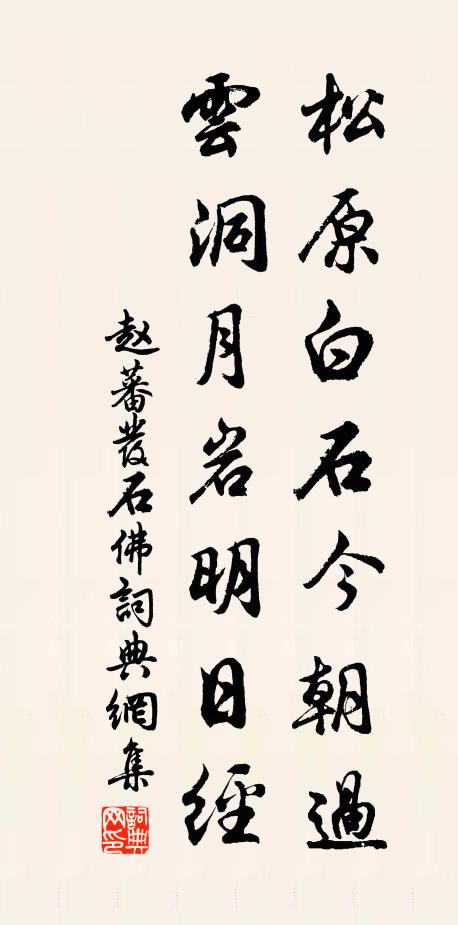 松原白石今朝過
雲洞月岩明日經
赵蕃發石佛詞典網集
詞典网印